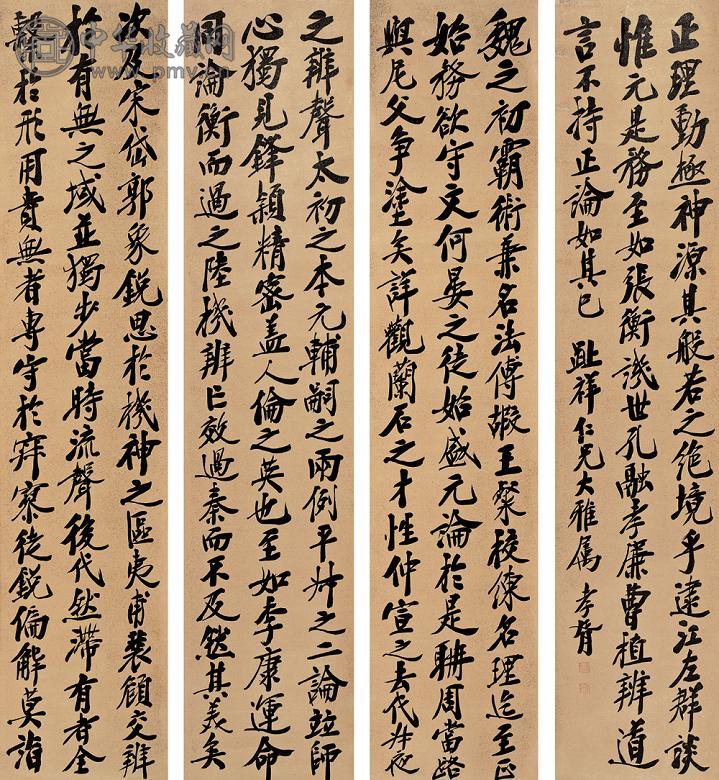 魏之初霸術兼名法傅嘏王粲校練名理迄至正
始務欲守文何晏之徒始盛元論於是聃周當路
與尼父爭塗矣詳觀蘭石之才性仲宣之去代叔夜
之辨聲太初之本元輔嗣之兩例平叔之二論竝師
心獨見鋒穎精密蓋人倫之英也至如李康運命
同論衡而過之陸機辨亡效過秦而不及然其美矣
次及宋岱郭象銳思於機神之區夷甫裴頠交辨
於有無之域並獨步當時流聲後代然滯有者全
繫於形用貴無者專守於寂寥徒銳偏解莫詣
正理動極神源其般若之絕境乎逮江左群談
惟元是務至如張衡譏世孔融孝廉曹植辨道
言不持正論如其已 趾祥仁兄大雅屬 孝胥
中华收藏网